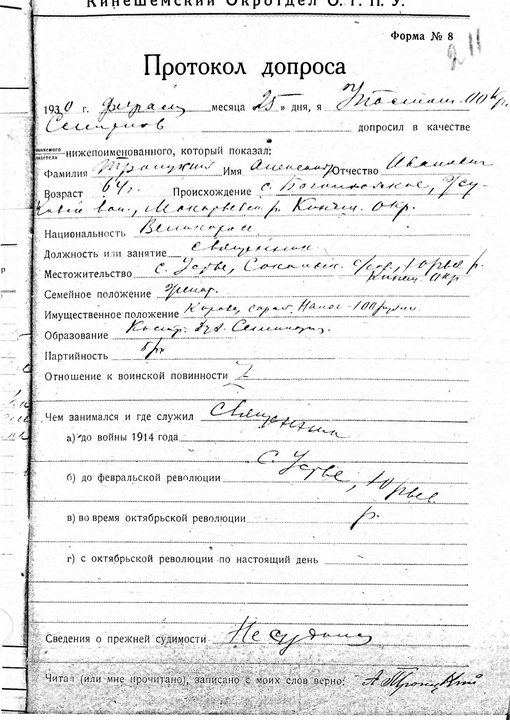 Кинешемский Окротдел О. Г. П. У.
Форма № 8
211
Протокол допроса
1930 г. февраля месяца 25 дня, я
Смирнов допросил в качестве
нижепоименованного, который показал:
Фамилия Троицкий Имя Александр Отчество Иванович
Возраст 64 г. Происхождение с.
вол., Макарьевск. р. Кинеш. окр.
Национальность Великоросс
Должность или занятие священник
Местожительство с. Устье, с/сов., Юрьев. р. Кинеш. окр.
Семейное положение женат.
Имущественное положение Корова, сарай, Налог - 100 рублей
Образование Костр. дух. Семинария
Партийность б/п
Отношение к воинской повинности
Чем занимался и где служил священник
а) до войны 1914 года
с. Устье, Юрьев. р.
б) до февральской революции
в) во время октябрьской революции
г) с октябрьской революции по настоящий день
Сведения о прежней судимости Не судился
Читал (или мне прочитано), записано с моих слов верно: А Троицкий